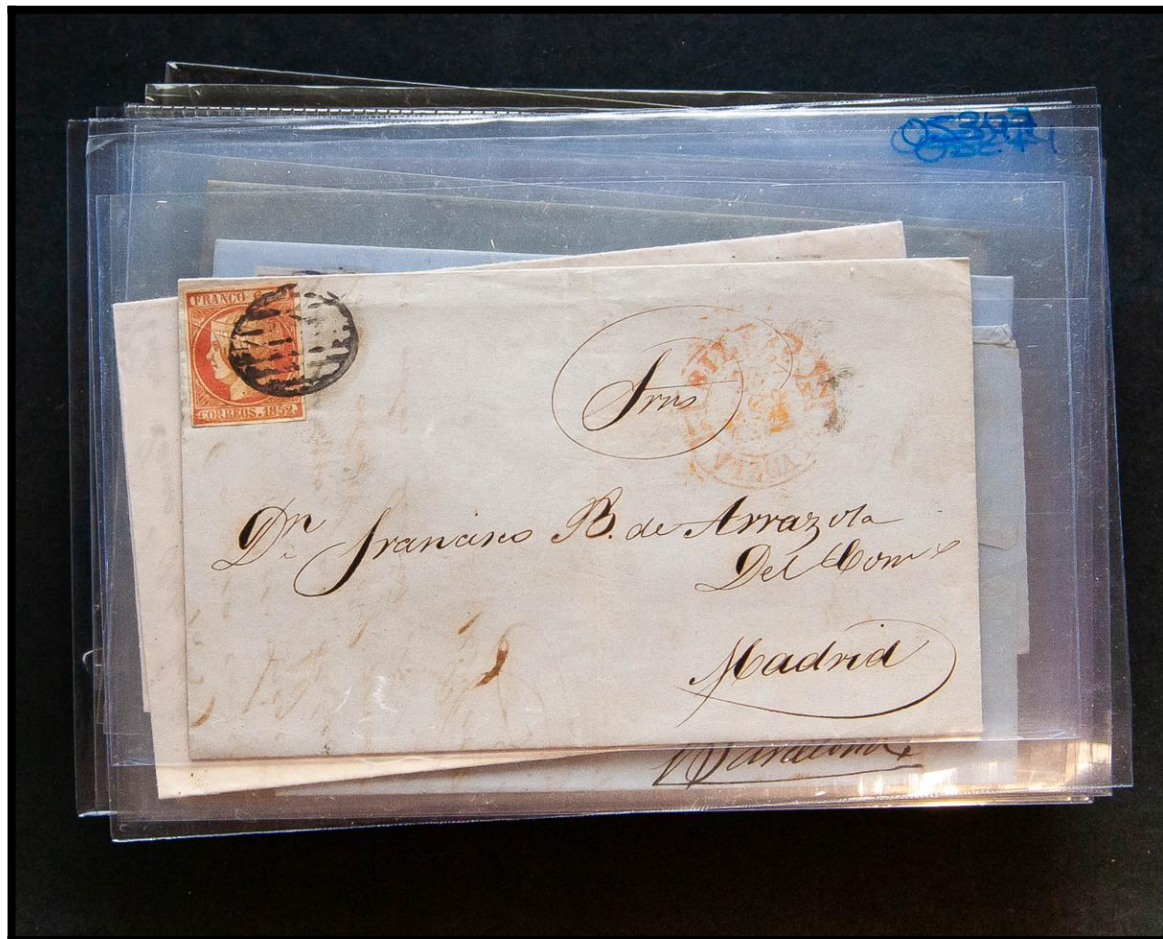 FRANCO
CORREOS. 1852.
BILBAO
VIZCAYA
Dn Francisco B. de Arrazola
Del Como
Madrid
Barcelona